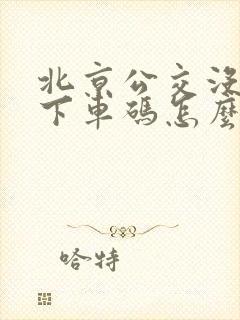 北京公交没
下車碼怎麼
哈特